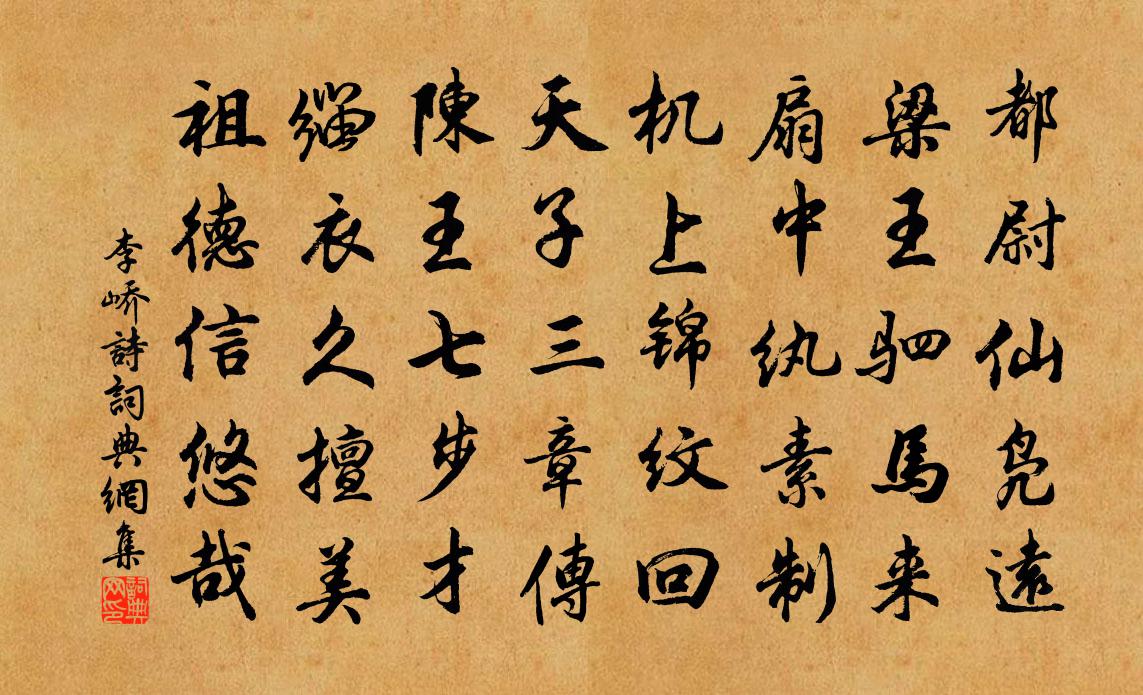 都尉仙凫遠
梁王驷馬来
扇中纨素制
机上锦纹回
天子三章傳
陳王七步才
缁衣久擅美
祖德信悠哉
李峤詩詞典網集
詞典网印